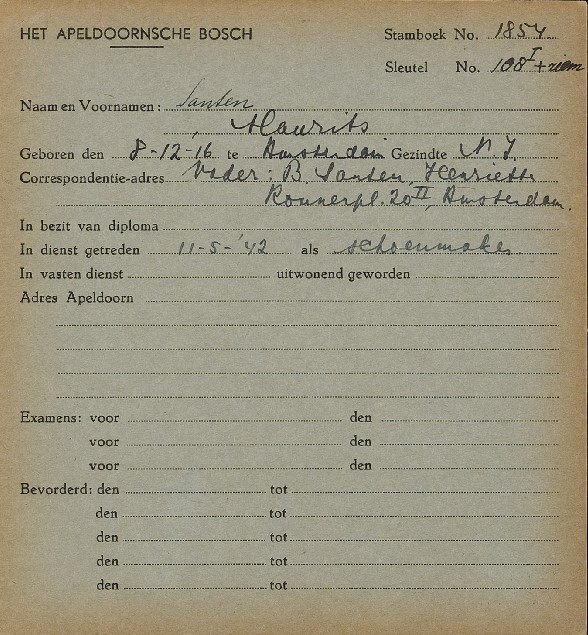 HET APELDOORNSCHE BOSCH
Stamboek No. 1854
Sleutel No. 108 I + riem
Naam en Voornamen: Santen
, Maurits
Geboren den 8-12-16 te Amsterdam Gezindte N.I.
Correspondentie-adres Vader: B. Santen, Henriette
Ronnerpl. 20 II, Amsterdam.
In bezit van diploma
In dienst getreden 11-5-'42 als schoenmaker
In vasten dienst uitwonend geworden
Adres Apeldoorn
Examens: voor den
voor den
voor den
Bevorderd: den tot
den tot
den tot
den tot
den tot